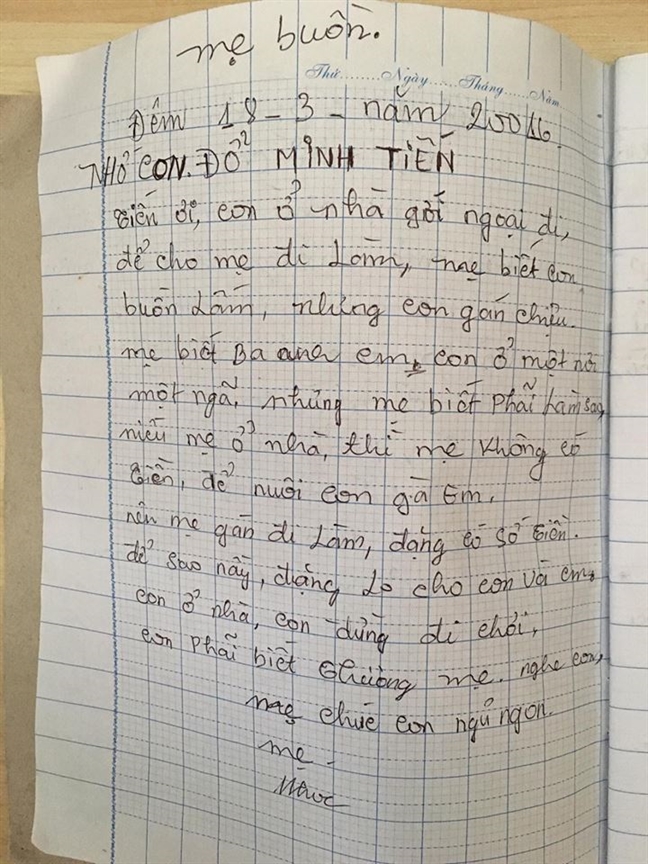 mẹ buồn.
Thứ.........Ngày.........Tháng.........Năm
Đêm 18-3-năm 20016
NHỚ CON. ĐỖ MINH TIẾN
tiến ơi, con ở nhà gới ngoại đi,
để cho mẹ đi Làm, mẹ biết con
buồn Lắm, nhưng con gắn chiệu.
mẹ biết Ba anh em, con ở một nơi
một ngã, nhưng mẹ biết phải Làm sao,
niếu mẹ ở nhà, thì mẹ không có
tiền, để nuôi con gà Em,
nên mẹ gắn đi Làm, đặng có số tiền.
để sao nầy, đặng Lo cho con và em,
con ở nhà, con đừng đi chơi,
con phải biết thương mẹ. nghe con,
mẹ chúc con ngủ ngon.
mẹ -